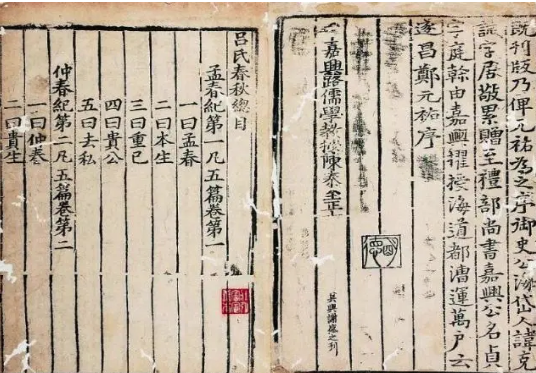 既刊版乃俾元祐為之序御史公岱人諱克
字居敬累贈至禮部尚書嘉興公名貞
字庭幹由嘉興擢授海道都漕運萬戶云
遂昌鄭元祐序
嘉興路儒學教授陳泰至正
吳興謝盛之刊
呂氏春秋總目
孟春紀第一凡五篇卷第一
一曰孟春
二曰本生
三曰重己
四曰貴公
五曰去私
仲春紀第二凡五篇卷第二
一曰仲春
二曰貴生